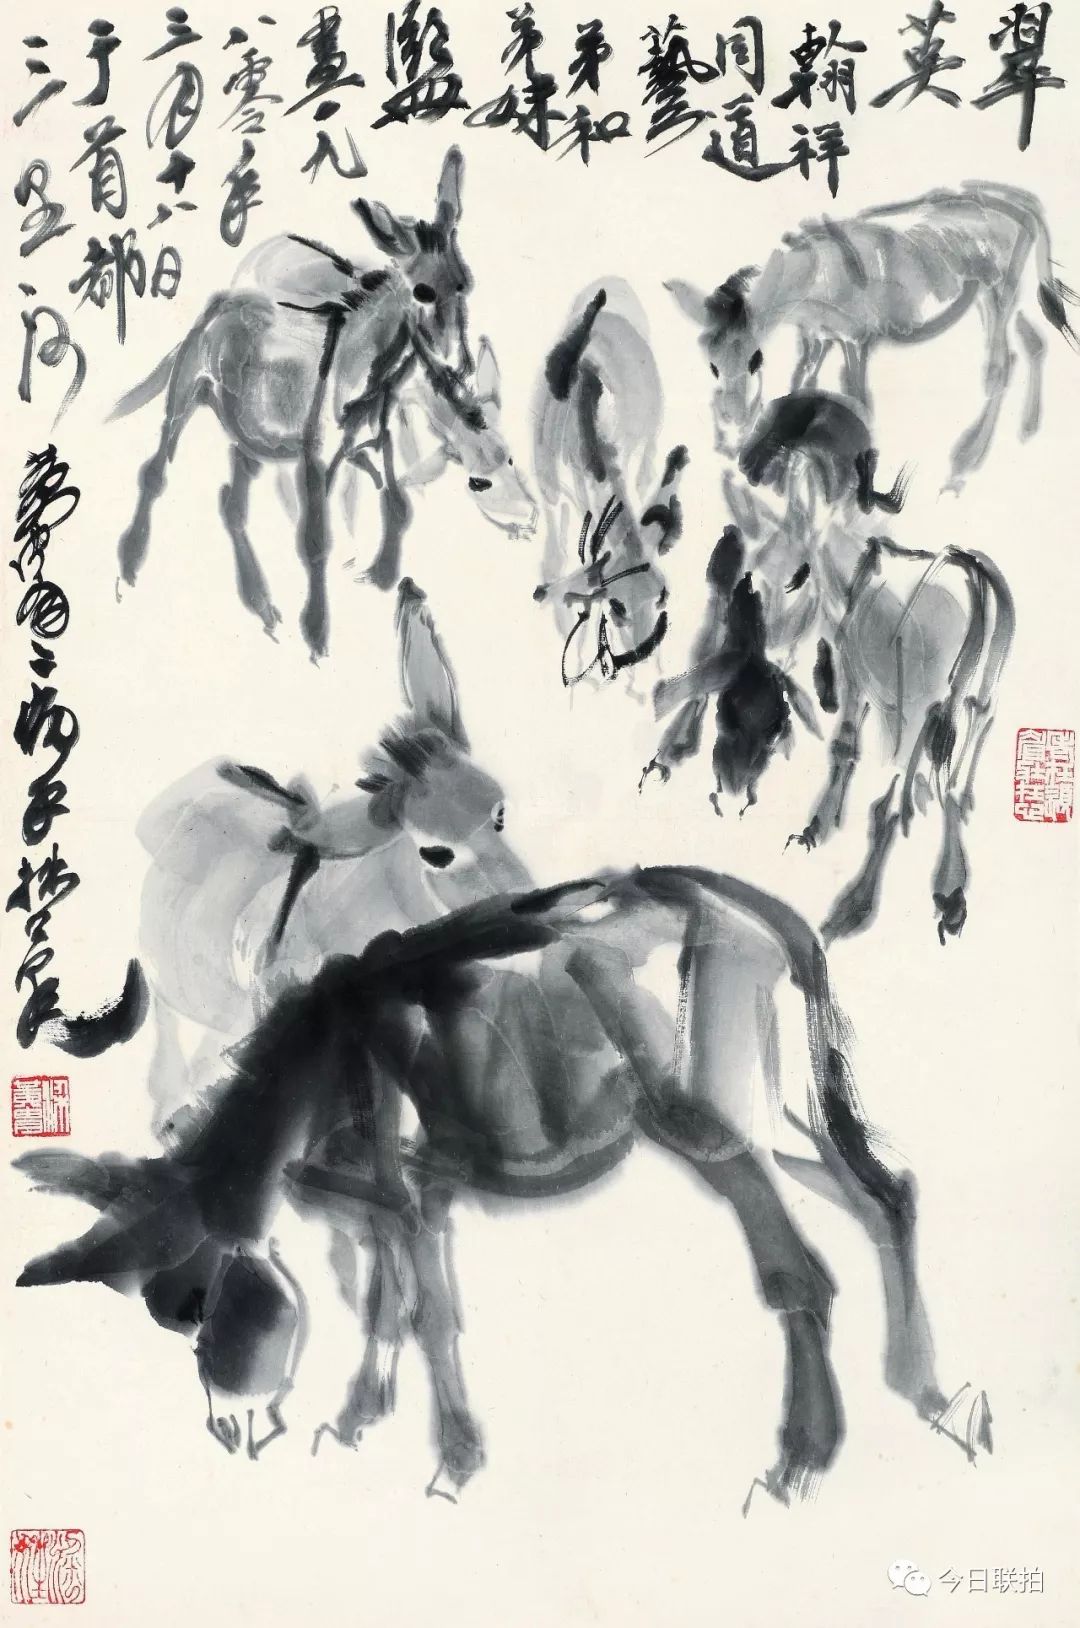 翠
英
翰祥
同道
藝
弟和
弟妹
鑒
畫一九
八零年
三月十八日
于首都
三里河
黄胄
今日联拍